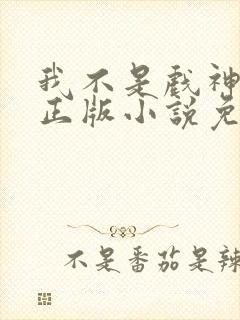 我不是戏神
正版小说免
不是番茄是辣